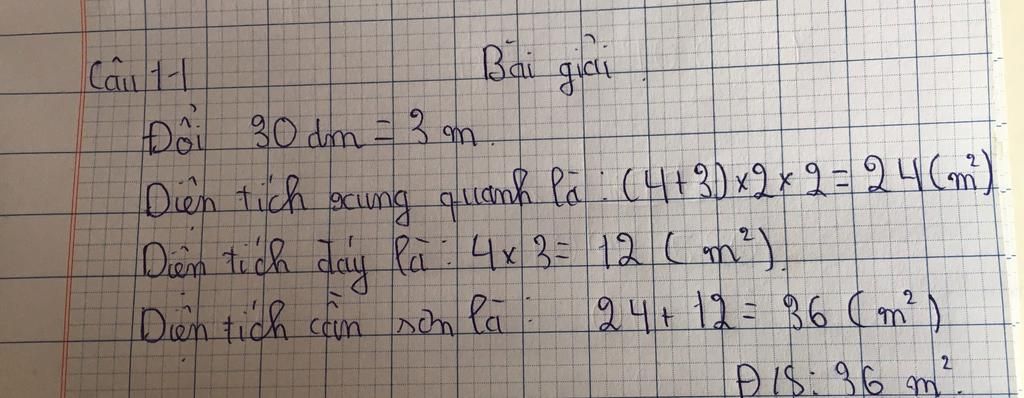 Câu 11 Bài giải
Đổi 30 dm = 3 m.
Diện tích xung quanh là : (4+3)×2×2 = 24 (m²)
Diện tích đáy là : 4×3 = 12 (m²).
Diện tích cần sơn là : 24 + 12 = 36 (m²)
Đ/S: 36 m².